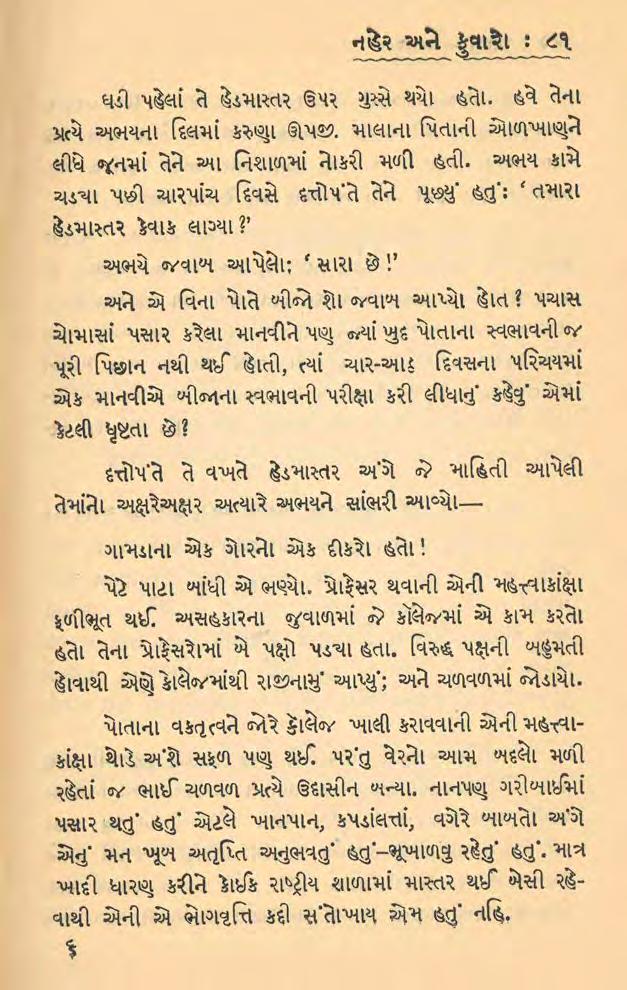 નહેર અને ફુવારો : ૮૧
ઘડી પહેલાં તે હેડમાસ્તર ઉપર ગુસ્સે થયો હતો. હવે તેના
પ્રત્યે અભયના દિલમાં કરુણા ઊપજી. માલાના પિતાની ઓળખાણને
લીધે જૂનમાં તેને આ નિશાળમાં નોકરી મળી હતી. અભય કામે
ચડયા પછી ચારપાંચ દિવસે દત્તોપંતે તેને પૂછ્યું હતું: ‘ તમારા
હેડમાસ્તર કેવાક લાગ્યા ?’
અભયે જવાબ આપેલો; ‘ સારા છે !’
અને એ વિના પોતે બીજો શો જવાબ આપ્યો હોત ? પચાસ
ચોમાસાં પસાર કરેલા માનવીને પણ જ્યાં ખુદ પોતાના સ્વભાવની જ
પૂરી પિછાન નથી થઈ હોતી, ત્યાં ચાર-આઠ દિવસના પરિચયમાં
એક માનવીએ બીજાના સ્વભાવની પરીક્ષા કરી લીધાનું કહેવું એમાં
કેટલી ધૃષ્ટતા છે ?
દત્તોપંતે તે વખતે હેડમાસ્તર અંગે જે માહિતી આપેલી
તેમાંનો અક્ષરેઅક્ષર અત્યારે અભયને સાંભરી આવ્યો—
ગામડાના એક ગોરનો એક દીકરો હતો !
પેટે પાટા બાંધી એ ભણ્યો. પ્રોફેસર થવાની એની મહત્ત્વાકાંક્ષા
ફળીભૂત થઈ. અસહકારના જુવાળમાં જે કૉલેજમાં એ કામ કરતો
હતો તેના પ્રોફેસરોમાં બે પક્ષો પડયા હતા. વિરુદ્ધ પક્ષની બહુમતી
હોવાથી એણે કોલેજમાંથી રાજીનામું આપ્યું; અને ચળવળમાં જોડાયો.
પોતાના વકતૃત્વને જોરે કૉલેજ ખાલી કરાવવાની એની મહત્ત્વા-
કાંક્ષા થોડે અંશે સફળ પણ થઈ. પરંતુ વેરનો આમ બદલો મળી
રહેતાં જ ભાઈ ચળવળ પ્રત્યે ઉદાસીન બન્યા. નાનપણ ગરીબાઈમાં
પસાર થતું હતું એટલે ખાનપાન, કપડાંલત્તાં, વગેરે બાબતો અંગે
એનું મન ખૂબ અતૃપ્તિ અનુભવતું હતું–ભૂખાળવુ રહેતું હતું. માત્ર
ખાદી ધારણ કરીને કોઈક રાષ્ટ્રીય શાળામાં માસ્તર થઈ બેસી રહે-
વાથી એની એ ભોગવૃત્તિ કદી સંતોખાય એમ હતું નહિ.
૬